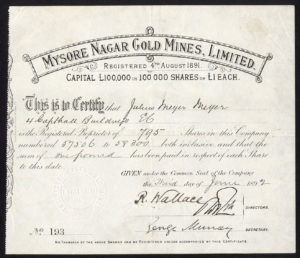 MYSORE NAGAR GOLD MINES, LIMITED.
REGISTERED 4TH AUGUST 1891.
CAPITAL £100,000 IN 100,000 SHARES OF £1 EACH.
This is to Certify that Julius Meyer Meyer
4 Copthall Buildings EC
is the Registered Proprietor of 795 Shares in this Company
numbered 57506 to 58300 both inclusive and that the
sum of one pound has been paid in respect of each Share
to this date.
GIVEN under the Common Seal of the Company
the Third day of June 1892
R. Wallace
DIRECTORS.
George Murray
SECRETARY.
No 193
NO TRANSFER OF THE ABOVE SHARES CAN BE REGISTERED UNLESS ACCOMPANIED BY THIS CERTIFICATE.